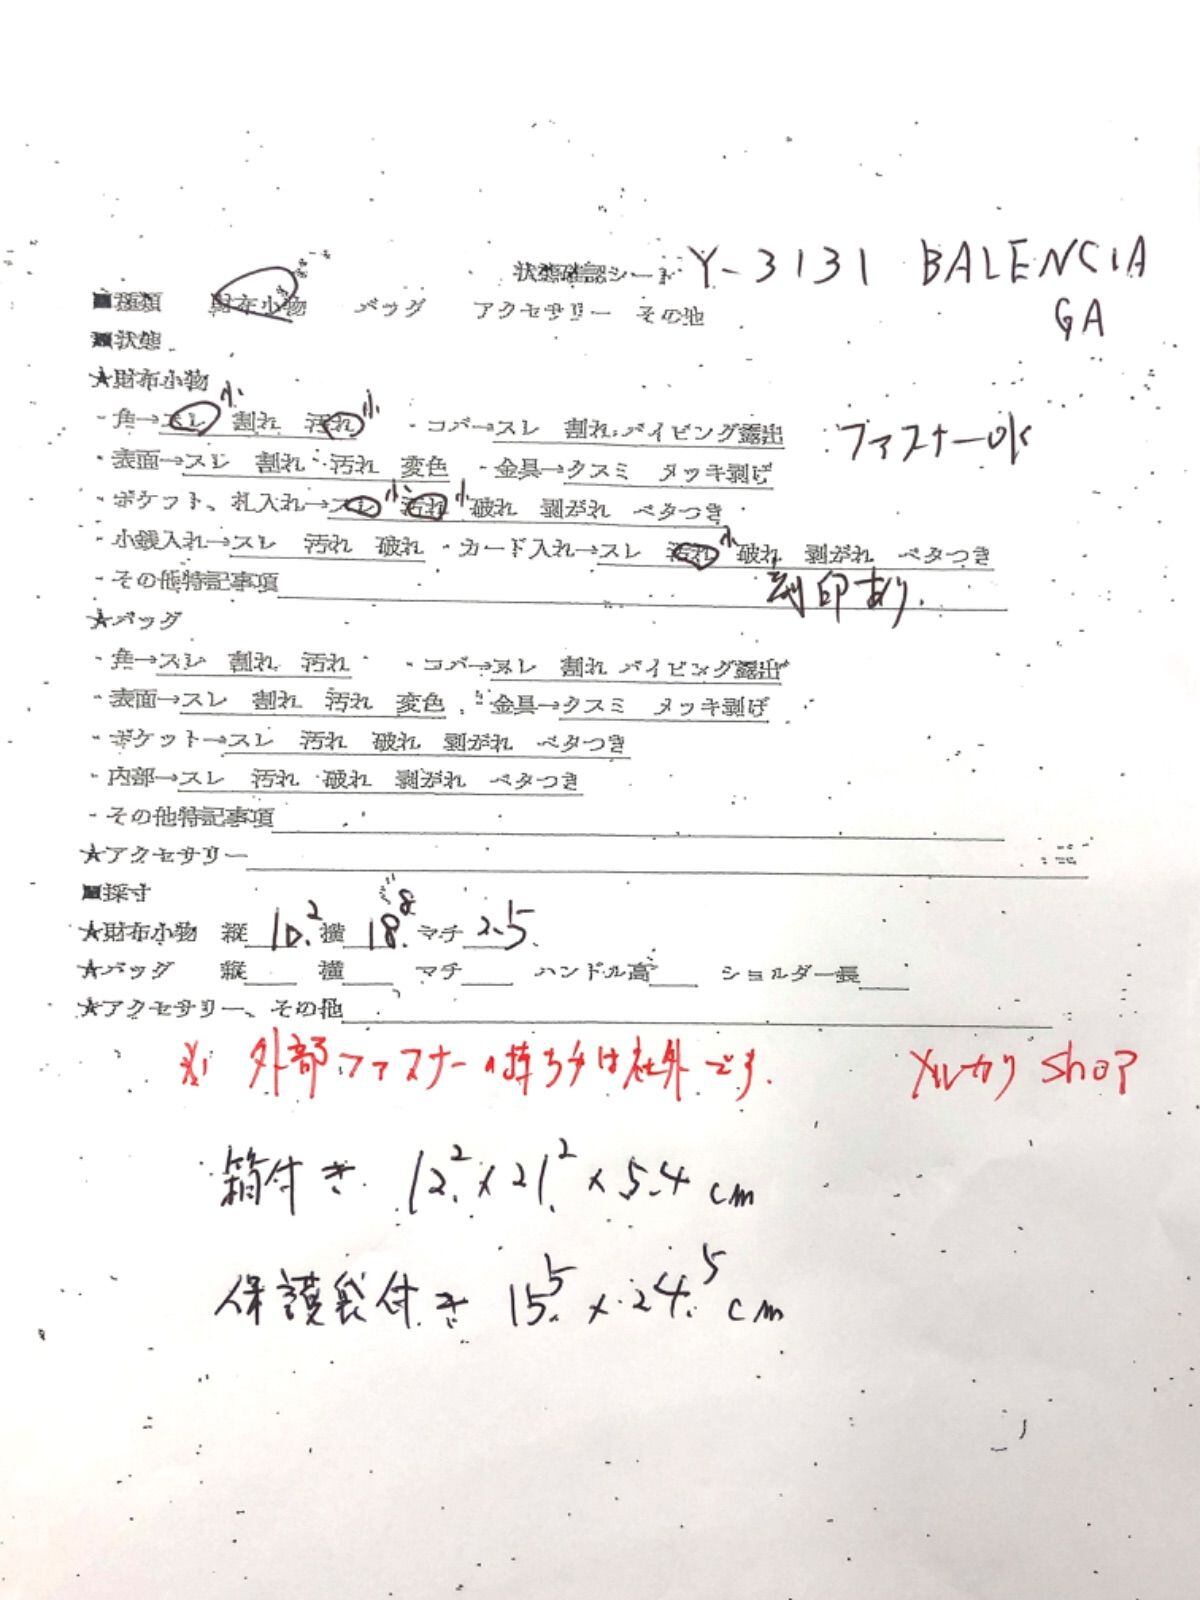 状態確認シート Y-3131 BALENCIA
GA
■種類 財布小物 バッグ アクセサリー その他
■状態
★財布小物
・角→スレ 小 割れ 汚れ 小 ・コバ→スレ 割れ パイピング露出 ファスナーOK
・表面→スレ 割れ 汚れ 変色 ・金具→クスミ メッキ剥げ
・ポケット、札入れ→スレ 小 汚れ 小 破れ 剥がれ ベタつき
・小銭入れ→スレ 汚れ 破れ ・カード入れ→スレ 汚れ 小 破れ 剥がれ ベタつき
・その他特記事項 刻印あり.
★バッグ
・角→スレ 割れ 汚れ ・コバ→スレ 割れ パイピング露出
・表面→スレ 割れ 汚れ 変色 ・金具→クスミ メッキ剥げ
・ポケット→スレ 汚れ 破れ 剥がれ ベタつき
・内部→スレ 汚れ 破れ 剥がれ ベタつき
・その他特記事項
★アクセサリー
■採寸
★財布小物 縦 10.2 横 18.8 マチ 2.5
★バッグ 縦 横 マチ ハンドル高 ショルダー長
★アクセサリー、その他
※ 外部ファスナーの持ち手は社外です. メルカリ shop
箱付き 12.2×21.2×5.4cm
保護袋付き 15.5×24.5cm